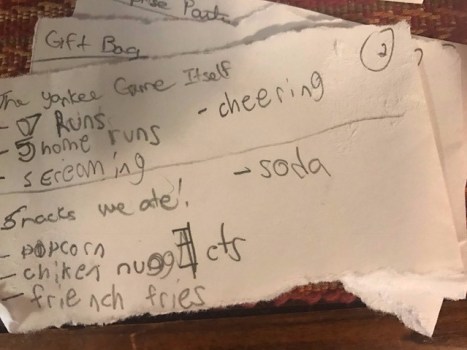 Gift Bag
2
The Yankee Game Itself
- 07 Runs
- cheering
- 5 home runs
- screaming
- soda
Snacks we ate!
- popcorn
- chiken nuggcts
- friench fries